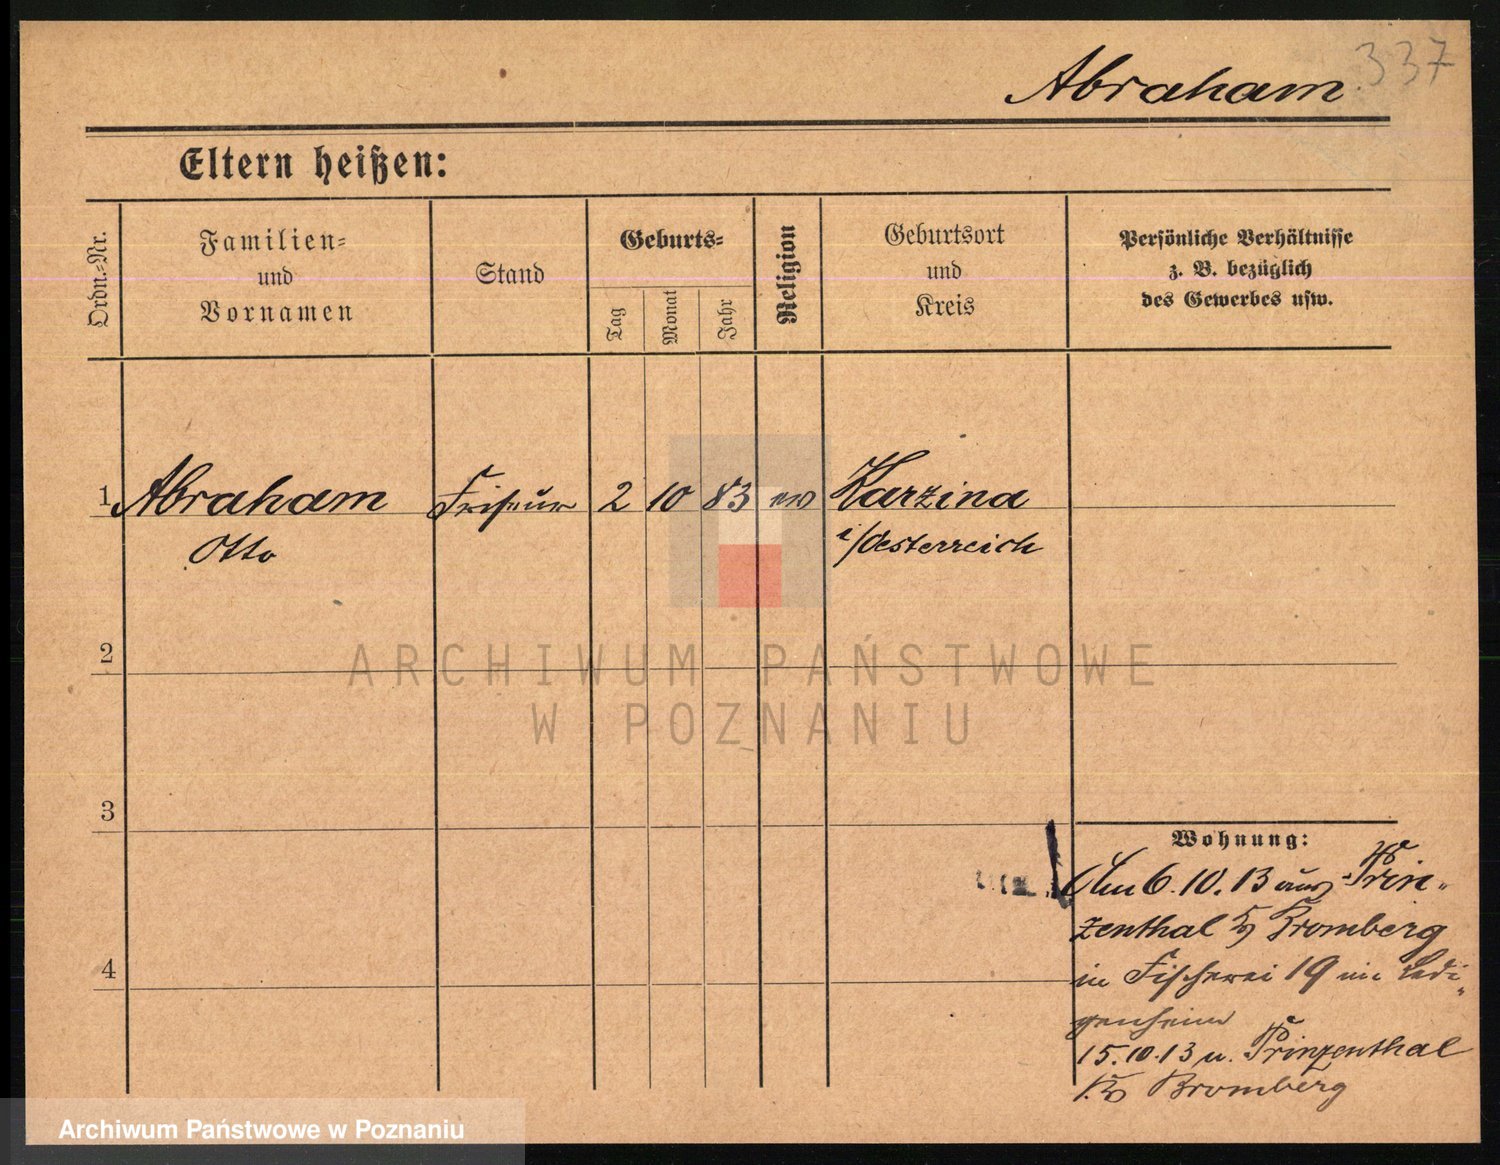 337
Abraham
Eltern heißen:
Ordn.=Nr.
Familien=
und
Vornamen
Stand
Geburts=
Tag
Monat
Jahr
Religion
Geburtsort
und
Kreis
Persönliche Verhältnisse
z. B. bezüglich
des Gewerbes usw.
1 Abraham Friseur 2 10 83 ev Karzina
Otto i/Oesterreich
2
ARCHIWUM PAŃSTWOWE
W POZNANIU
3
Wohnung:
Am 6.10.13 aus Prin-
zenthal Bromberg
in Fischerei 19 im Ledi-
genheim
15.10.13 n. Prinzenthal
Bromberg
4
Archiwum Państwowe w Poznaniu